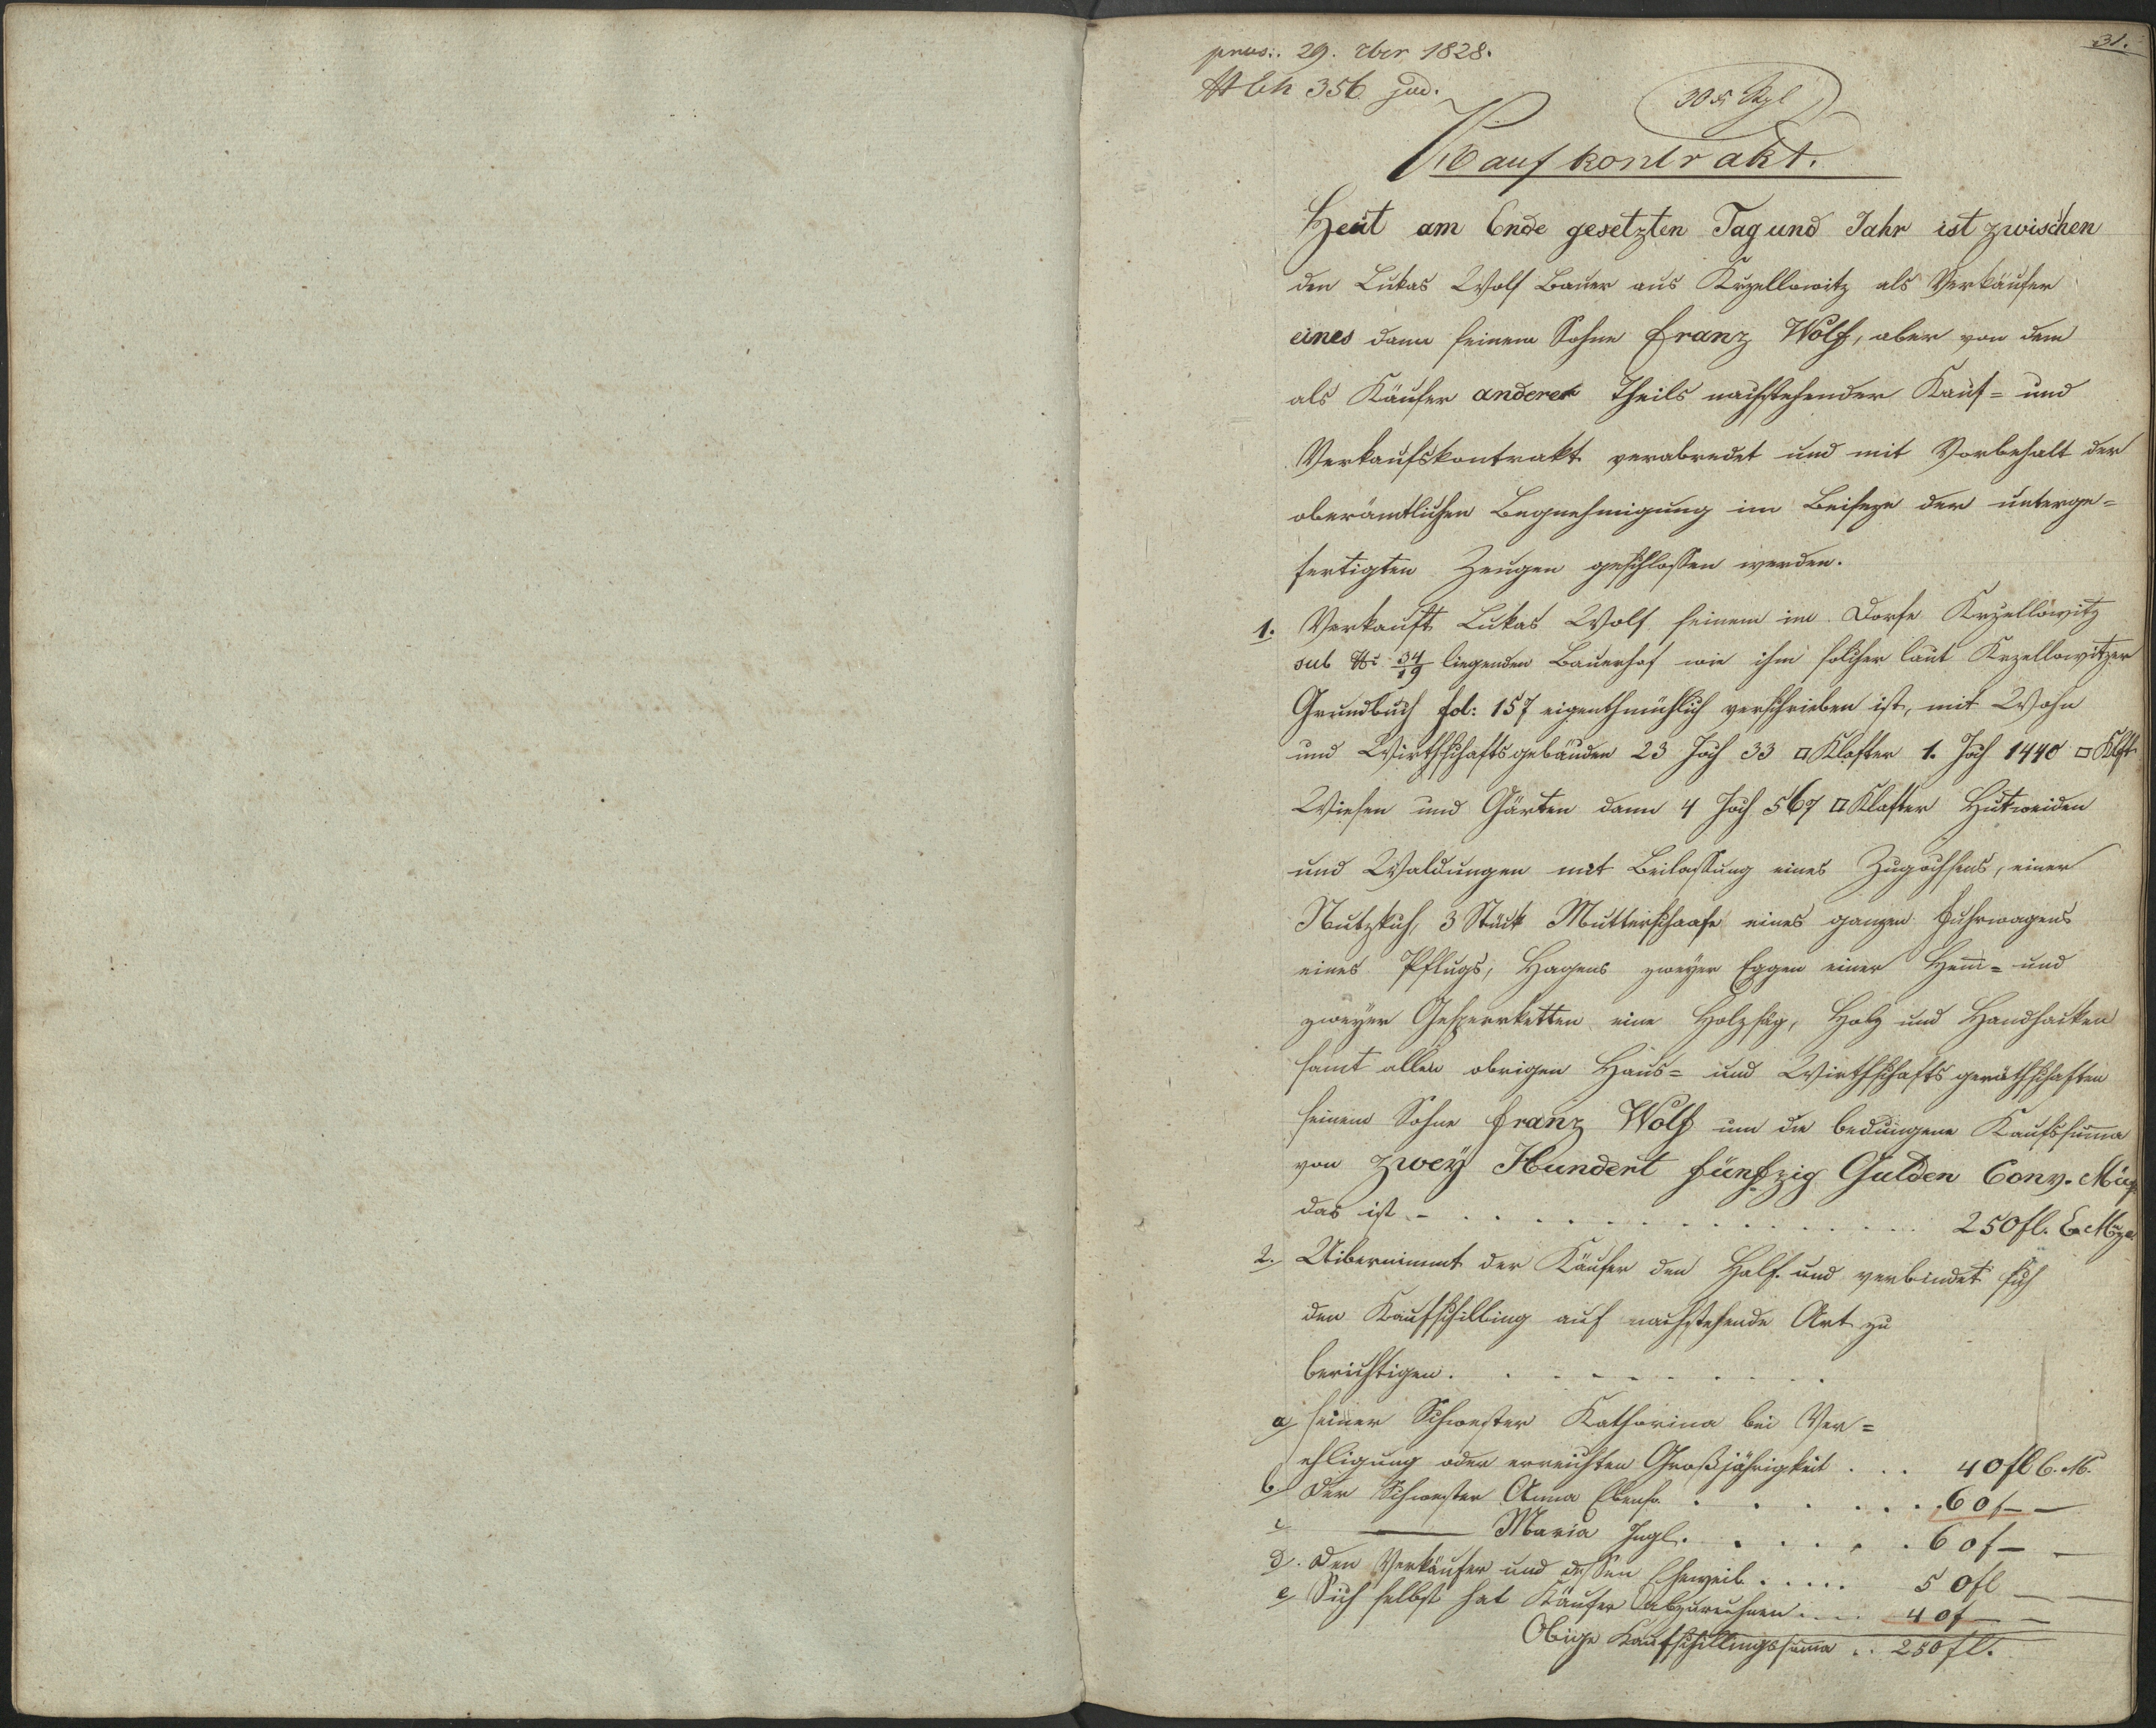 31.
praes: 29. xber 1828.
N Eh 356 jud.
30 x Kzl
Kaufkontrakt.
Heut am Ende gesetzten Tag und Jahr ist zwischen
den Lukas Wolf Bauer aus Krzellowitz als Verkäufer
eines dann seinem Sohne Franz Wolf, aber von dem
als Käufer anderer Theils nachstehender Kauf= und
Verkaufskontrakt verabredet und mit Vorbehalt der
oberämtlichen Begnehmigung im Beiseyn der unterge=
fertigten Zeugen geschlossen werden.
1. Verkauft Lukas Wolf seinem im Dorfe Krzellowitz
sub N: 34/19 liegenden Bauerhof wie ihm solcher laut Krzellowitzer
Grundbuch fol: 157 eigenthümlich verschrieben ist, mit Wohn
und Wirthschaftsgebäuden 23 Joch 33 □Klafter 1. Joch 1440 □Klft
Wiesen und Gärten dann 4 Joch 567 □Klafter Hutweiden
und Waldungen mit Beilassung eines Zugochsens, einer
Nutzkuh, 3 Stück Mutterschaafe eines ganzen Fuhrwagens
eines Pflugs, Hagens zweyer Eggen einer Hem̄= und
zweyer Gesperrketten eine Holzsäg, Holz und Handhacken
samt allen obrigen Haus= und Wirthschaftsgeräthschaften
seinem Sohne Franz Wolf um die bedungene Kaufssum̄a
von zwey Hundert fünfzig Gulden Conv. Mü
das ist - . . . . . . . . . . . . . . 250 fl. C. Mze
2. Uibernimmt der Käufer den Hof und verbindet sich
den Kaufschilling auf nachstehende Art zu
berichtigen. . . . . . . . . .
a/ seiner Schwester Katharina bei Ver=
ehligung oder erreichten Großjährigkeit . . . 40 fl C. M.
b/ der Schwester Anna Ebenso . . . . . . . 60 f — —
c — Maria Ingl. . . . . . . 60 f — —
d. den Verkäufer und dessen Eheweib . . . . . 50 fl — —
e/ Sich selbst hat Käufer abzurechnen . . . . 40 f — —
Obige Kaufschillingssum̄a . . 250 fl.